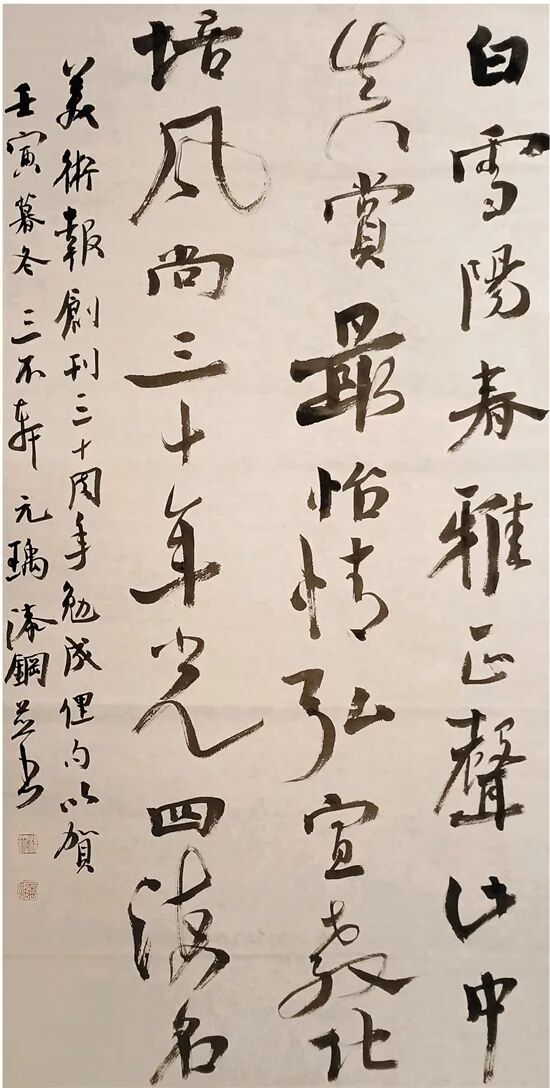 白雪陽春雅正聲此中
真賞最怡情弘宣教化
培風尚三十年光四海名
美術報創刊三十周年勉成俚句以賀
壬寅暮冬 三不軒 元瑀 漆鋼並書